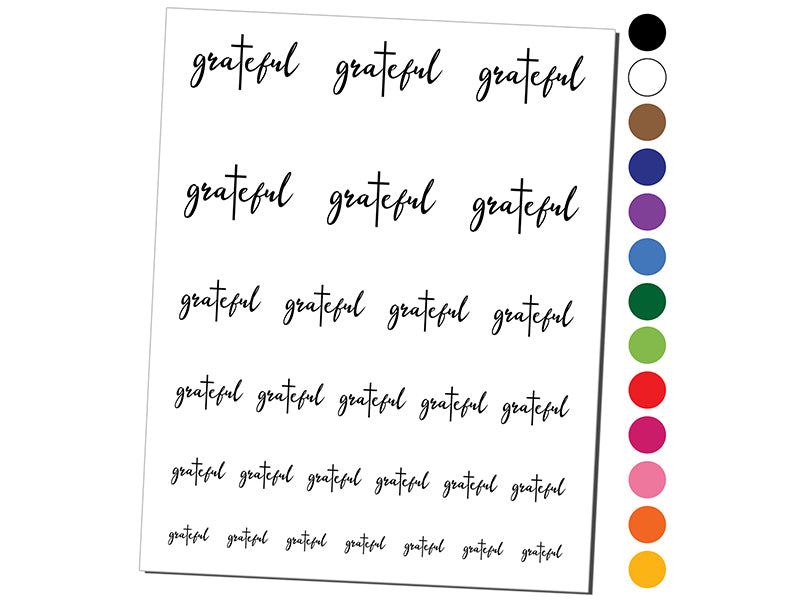 grateful grateful grateful
grateful grateful grateful
grateful grateful grateful grateful
grateful grateful grateful grateful grateful
grateful grateful grateful grateful grateful grateful
grateful grateful grateful grateful grateful grateful grateful